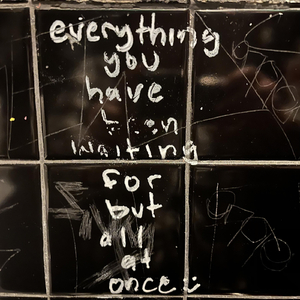 everything
you
have
been
waiting
for
but
all
at
once :)